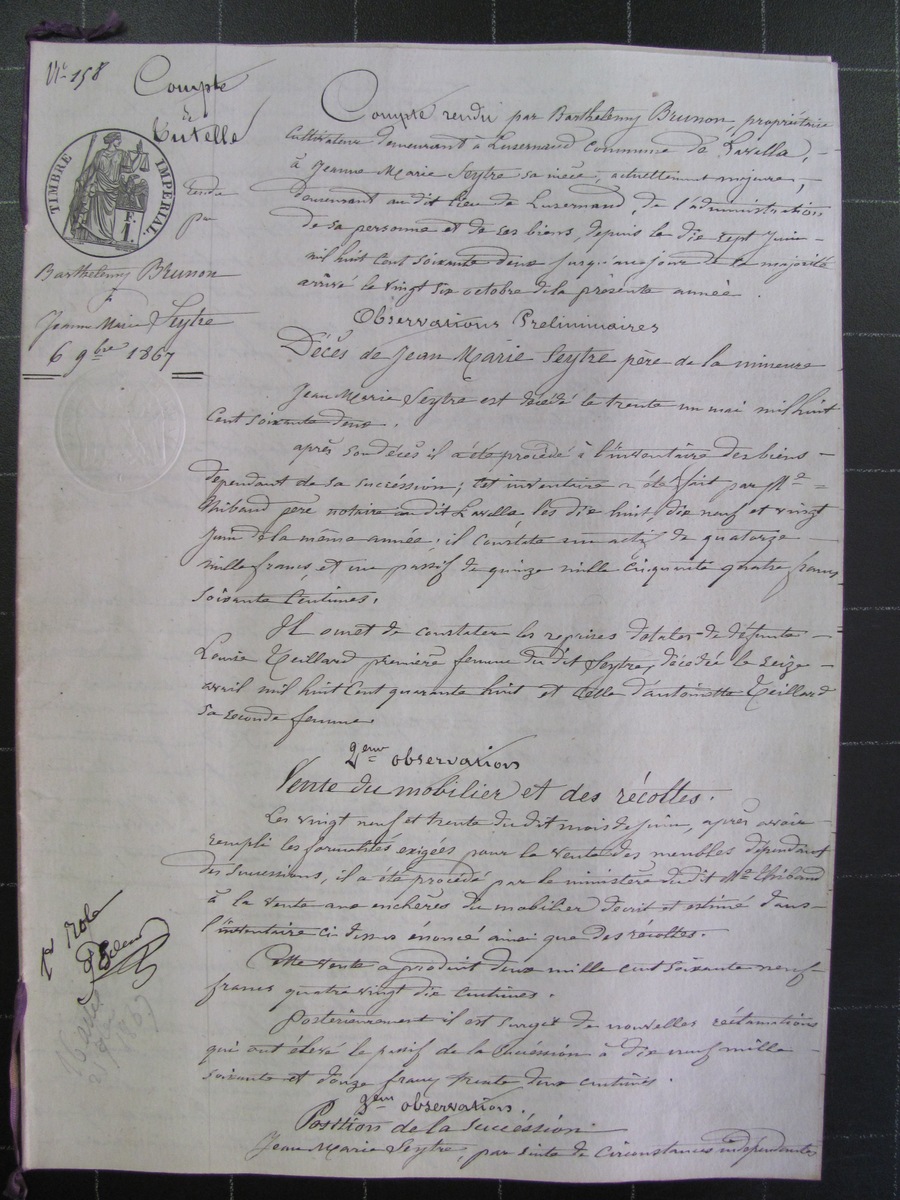 N° 158
Compte
de
Tutelle
TIMBRE IMPERIAL.
1 F.
rendu
par
Barthélemy Brunon
à
Jeanne Marie Seytre
6 9bre 1867
Compte rendu par Barthélemy Brunon, propriétaire
cultivateur demeurant à Luzernaud commune de Lavella,
à Jeanne Marie Seytre sa nièce, actuellement majeure,
demeurant au dit lieu de Luzernaud, de l'administration
de sa personne et de ses biens, depuis le dix sept juin
mil huit cent soixante deux jusqu'au jour de sa majorité
arrivé le vingt six octobre de la présente année.
Observations Preliminaires
Décès de Jean Marie Seytre père de la mineure
Jean Marie Seytre est décédé le trente un mai mil huit
cent soixante deux.
après son décès il a été procédé à l'inventaire des biens
dependant de sa succéssion; cet inventaire a été fait par Me
Thibaud père notaire au dit Lavella les dix huit, dix neuf et vingt
juin de la même année; il constate un actif de quatorze
mille francs, et un passif de quinze mille cinquante quatre francs
soixante centimes.
Il omet de constater les reprises dotales de défunte
Louise Teillard première femme du dit Seytre, décédée le seize
avril mil huit cent quarante huit et celle d'antoinette Teillard
sa seconde femme.
2eme observation
Vente du mobilier et des récoltes.
Les vingt neuf et trente du dit mois de juin, après avoir
rempli les formalités exigées pour la vente des meubles dépendant
des successions, il a été procédé par le ministère du dit Me Thibaud
à la vente aux enchères du mobilier décrit et estimé dans
l'inventaire ci-dessus énoncé ainsi que des récoltes.
Cette vente a produit deux mille cent soixante neuf
francs quatre vingt dix centimes.
Posterieurement il est surgit de nouvelles réclamations
qui ont élevé le passif de la succéssion à dix neuf mille
soixante et douze francs trente deux centimes.
3eme observation.
Position de la succéssion.
Jean Marie Seytre, par suite de circonstances indépendantes
1er role